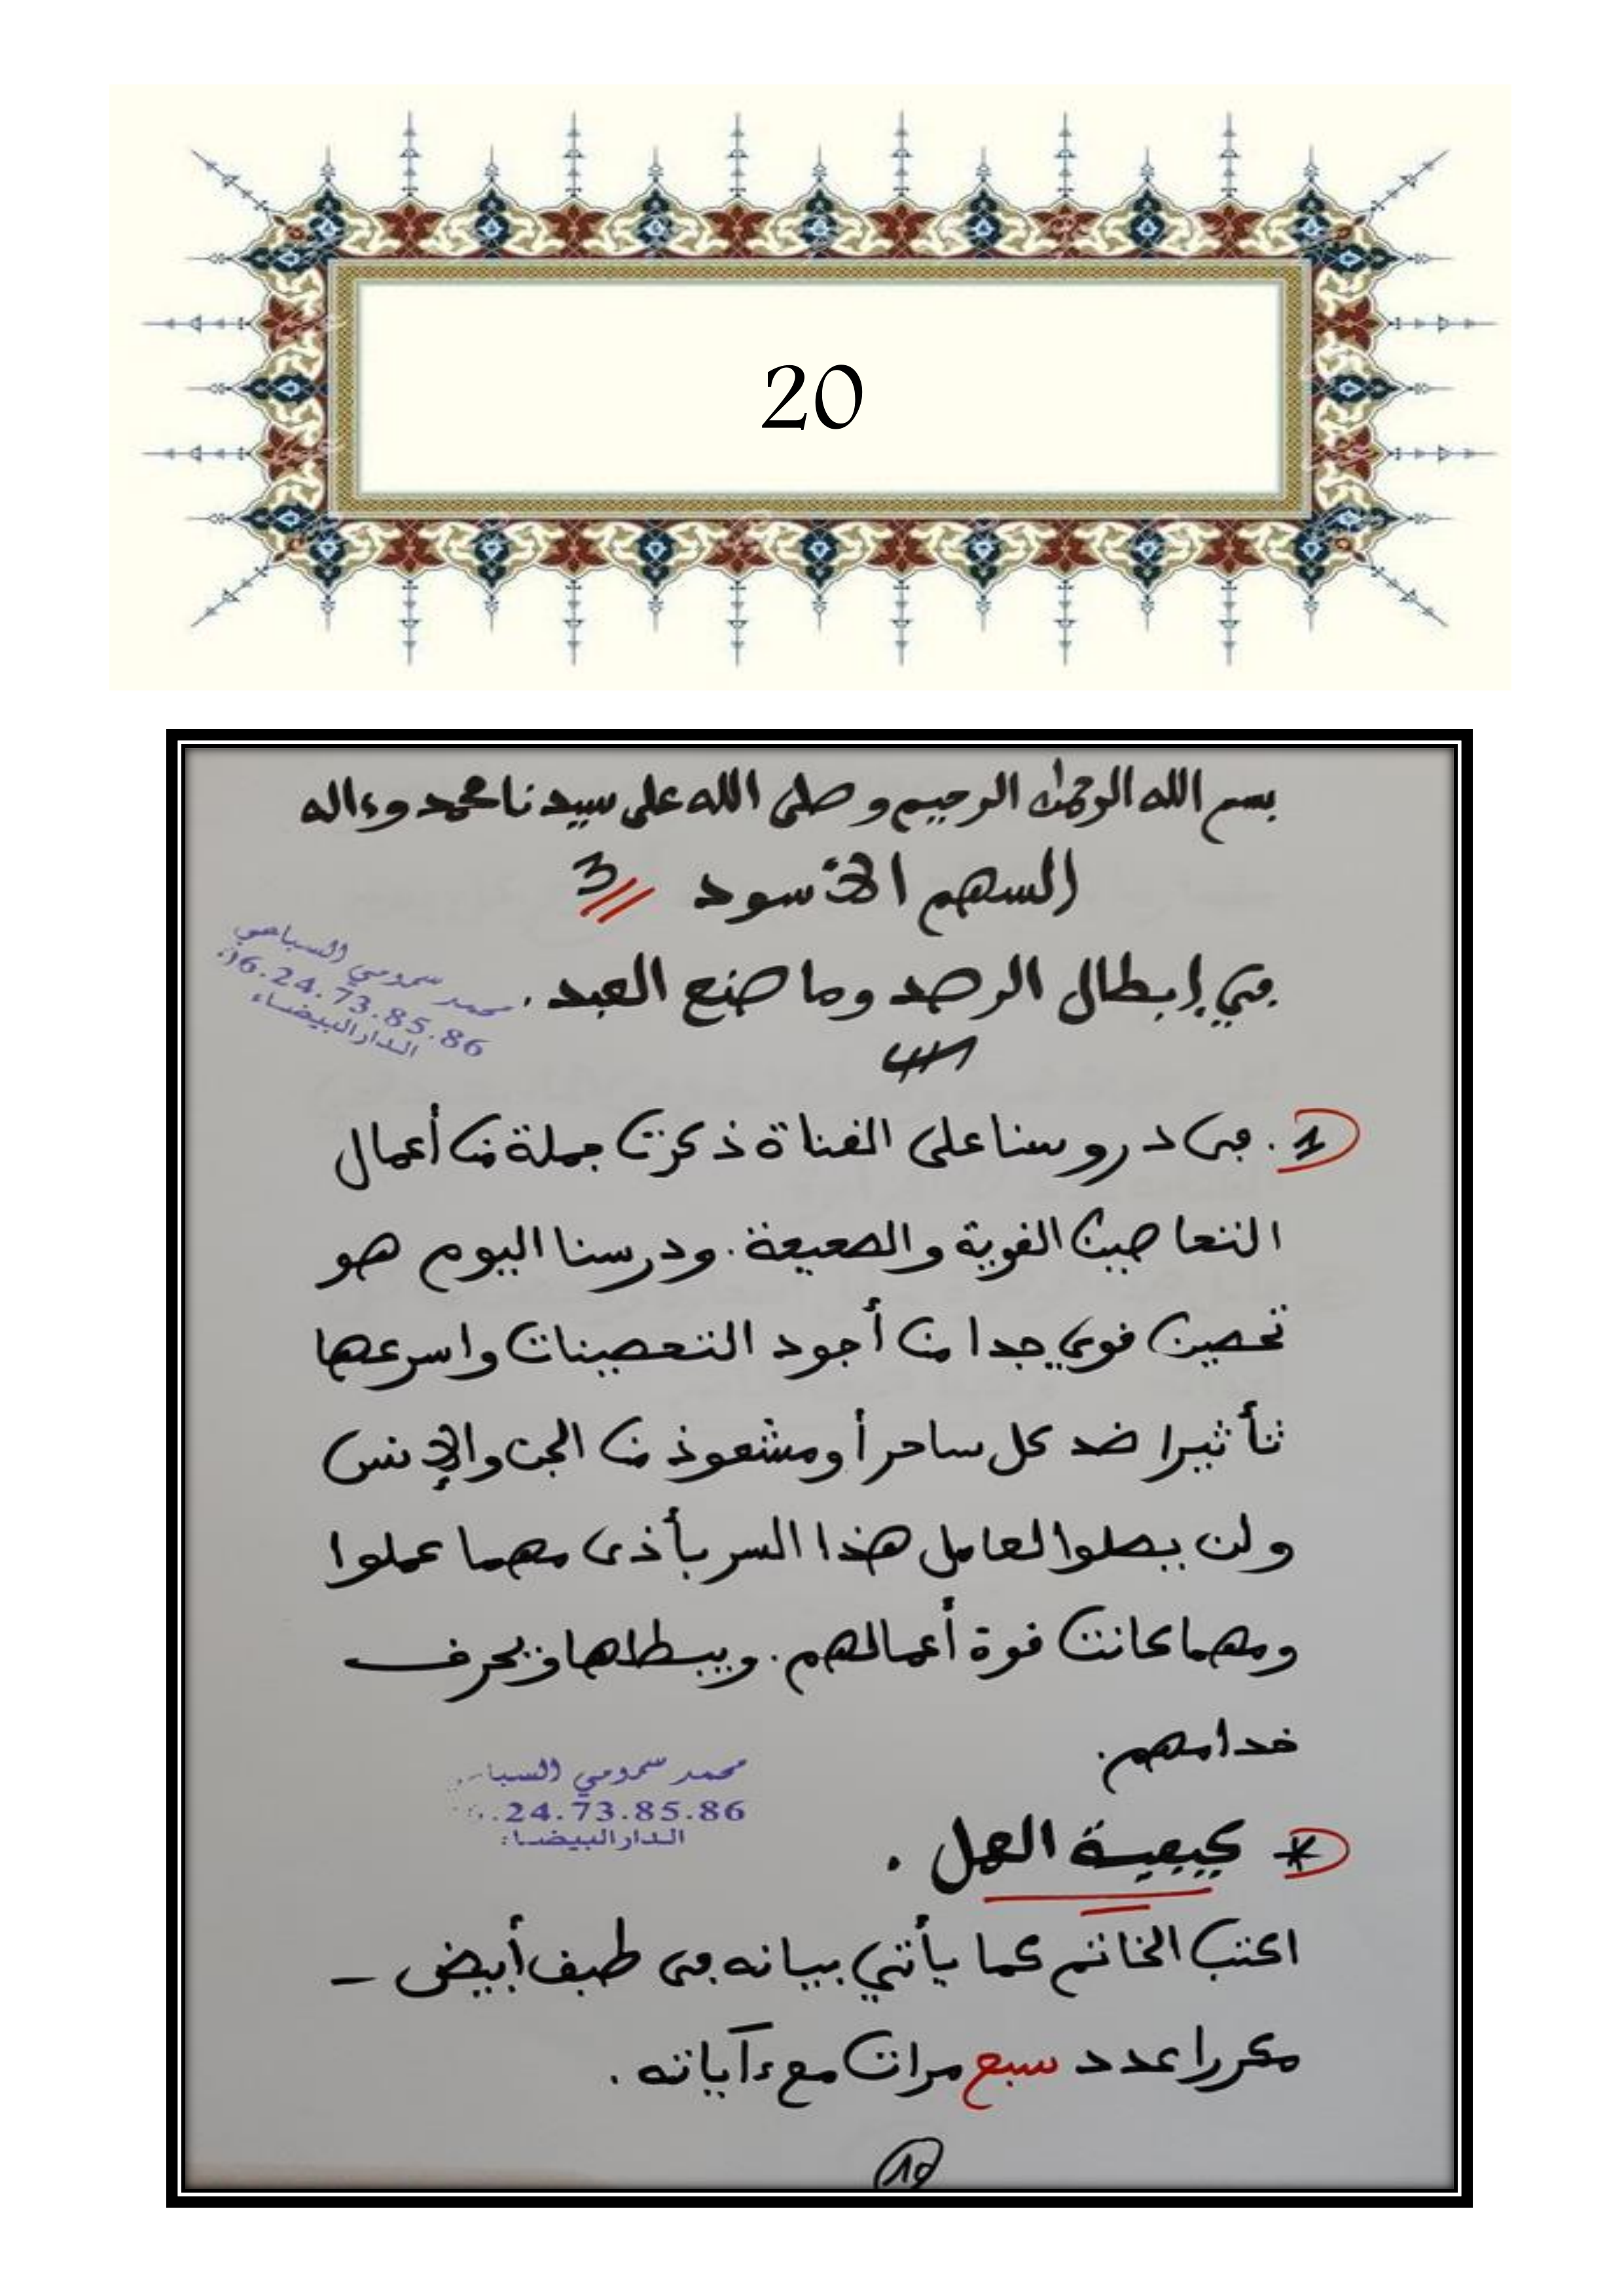 20
بسم الله الرحمٰن الرحيم وصلى الله على سيدنا محمد وءاله
السهم الأسود 3
في إبطال الرصد وما صنع العبد.
محمد سمومي السباعي
06.24.73.85.86
الدار البيضاء
1. في دروسنا على القناة ذكرت جملة من أعمال
التحاصين القوية والضعيفة. ودرسنا اليوم هو
تحصين قوي جدا من أجود التحصينات واسرعها
تأثيرا ضد كل ساحر أو مشعوذ من الجن والإنس
ولن يصلوا لعامل هذا السر بأذى مهما عملوا
ومهما كانت قوة أعمالهم. ويبطلها ويحرق
خدامهم.
محمد سمومي
24.73.85.86
الدار البيضاء
* كيفية العمل.
اكتب الخاتم كما يأتي بيانه في طبق أبيض -
مكررا عدد سبع مرات مع ءآياته.